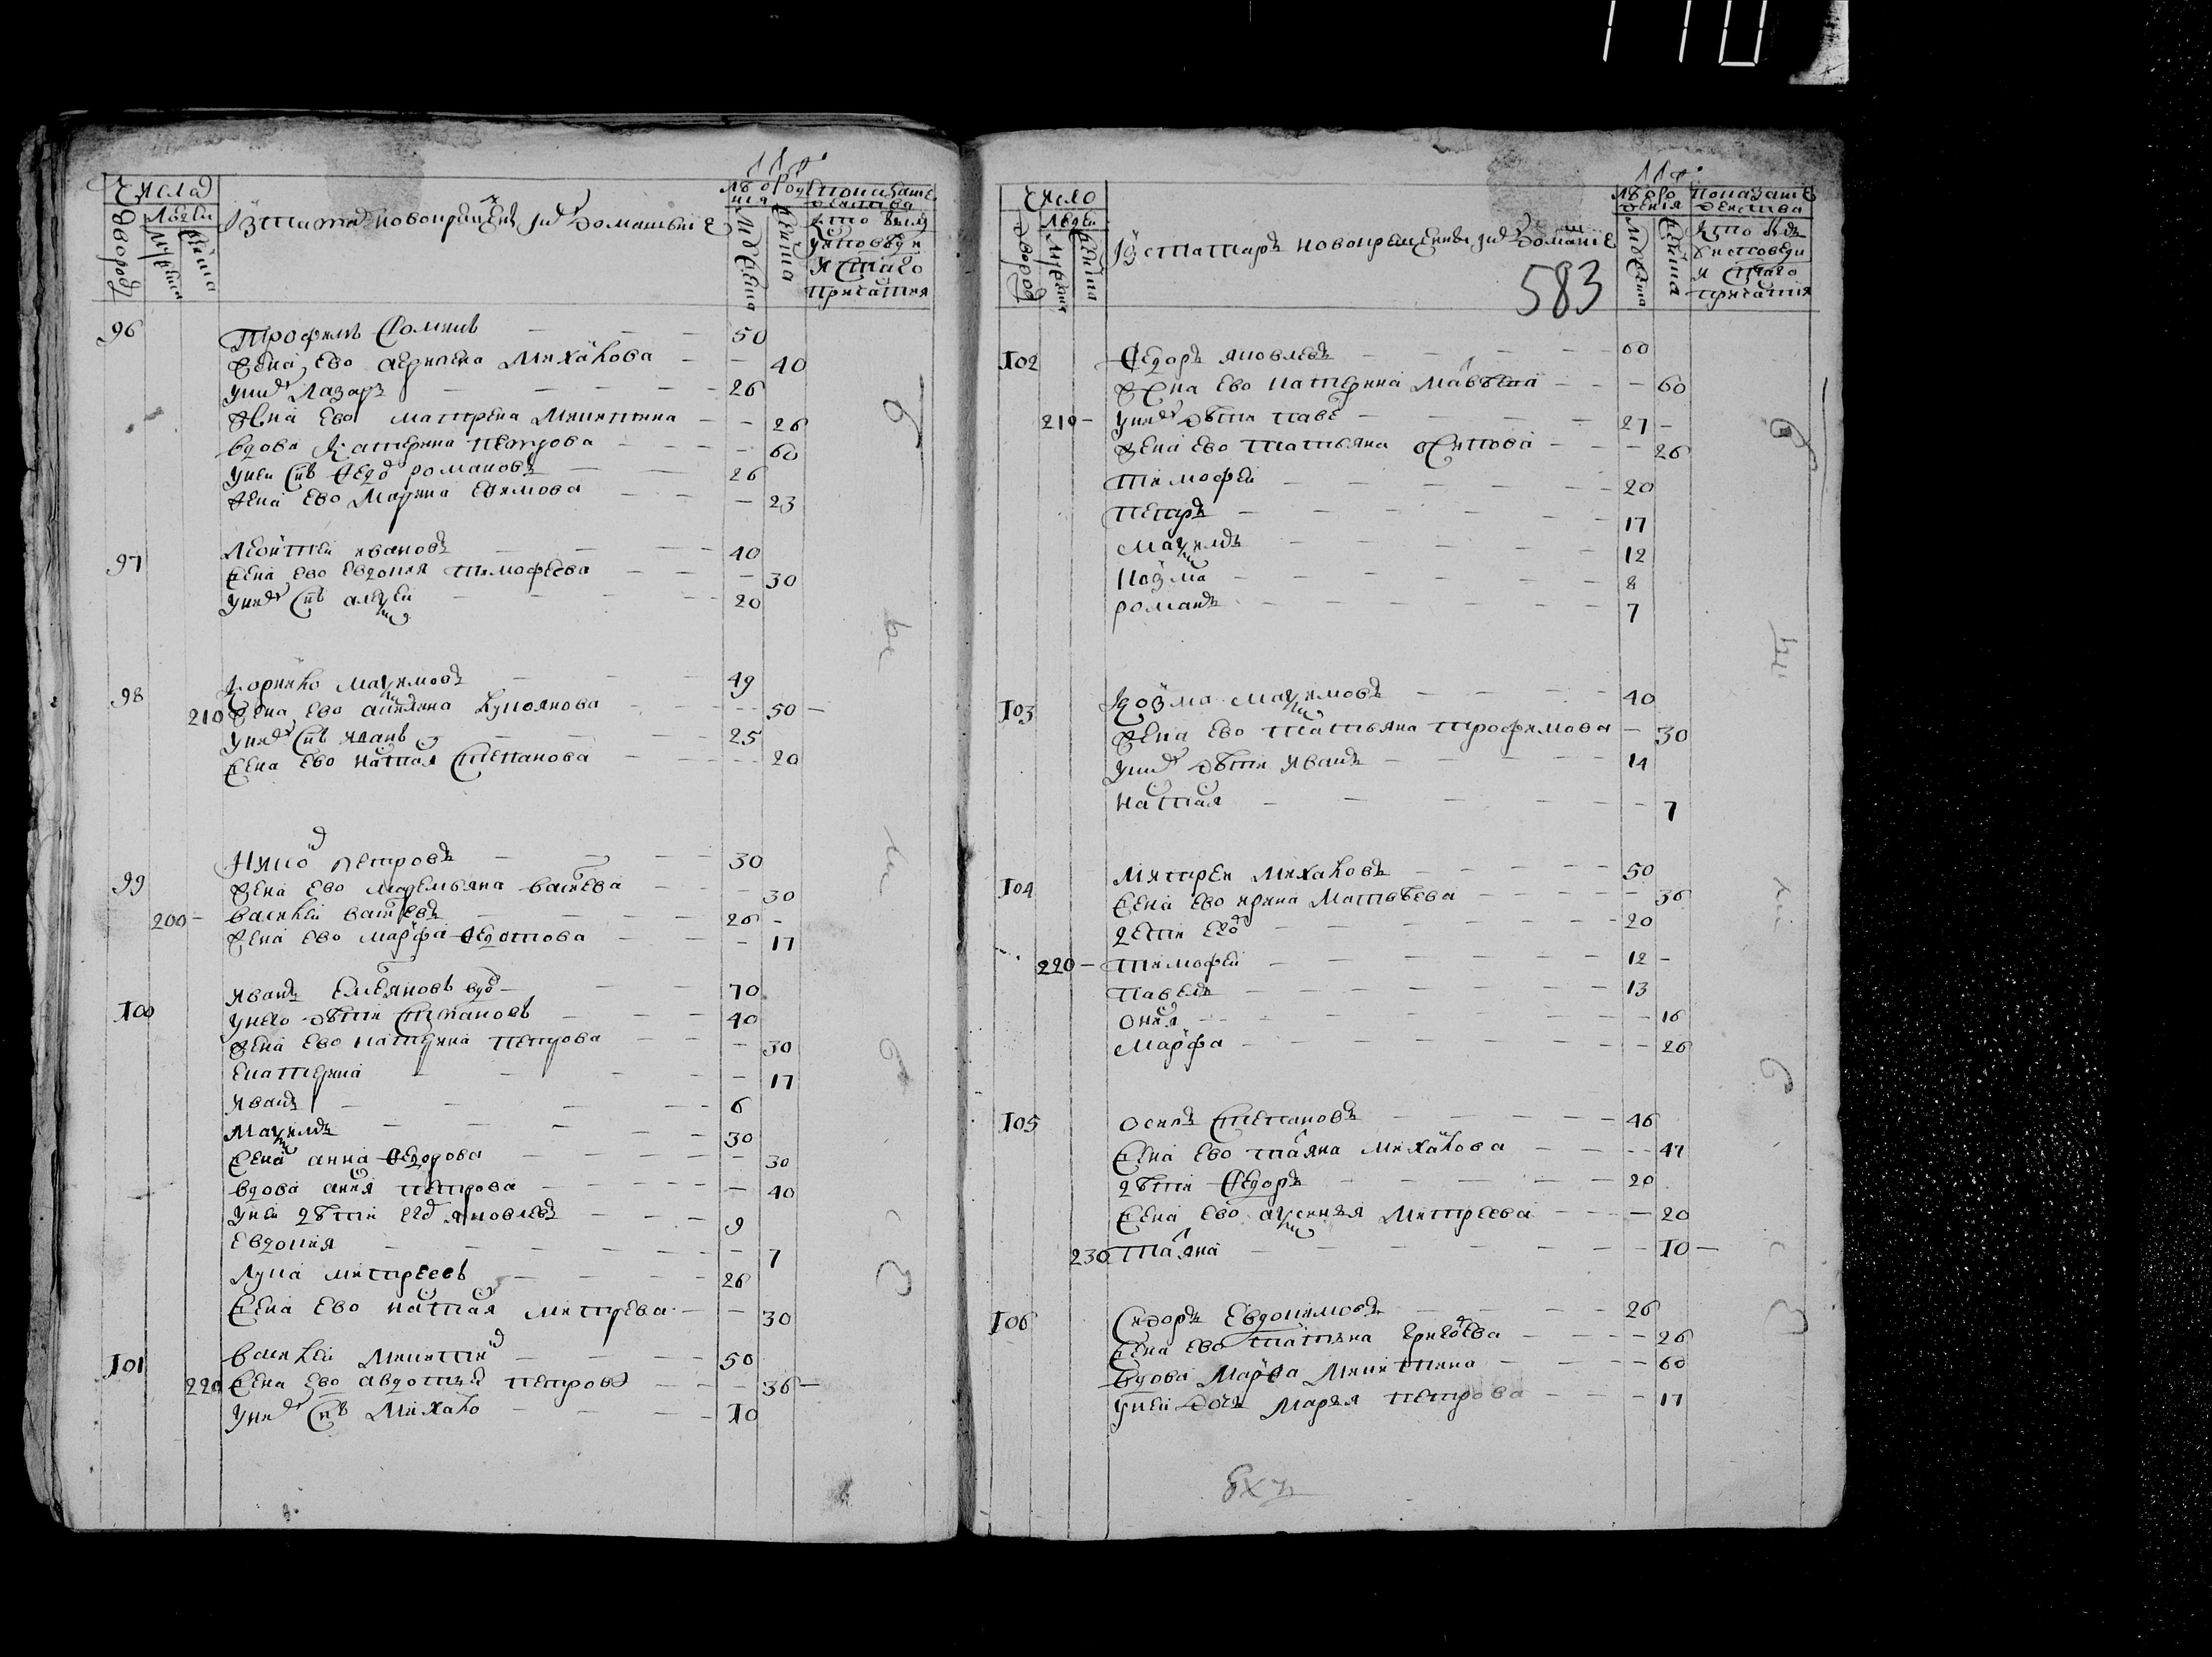 110
Число
Дворов
Людеи
Мужеска
Женска
Из татар новокрещены и их домашние
Лет от рождения
Мужеска
Женска
Показание действа
Кто был у исповеди и святаго причастия
96
Трофимъ Фоминъ 50
Жена ево Агрипена Михайлова 40
У них Лазарь 26
Жена ево Матрена Микитина 26
Вдова Катерина Петрова 60
У неи снъ Федоръ Романовъ 26
Жена ево Марина Ефимова 23
97
Леонтеи Ивановъ 40
Жена ево Евдокия Тимофеева 30
У них снъ Алексеи 20
98
Корнило Максимовъ 49
210 Жена ево Акилина Лукоянова 50
У них снъ Иванъ 25
Жена ево Настася Степанова 20
99
Никифоръ Петровъ 30
Жена ево Маремьяна Васильева 30
200 Василеи Васильевъ 26
Жена ево Марфа Федотова 17
100
Иванъ Емельяновъ вдовъ 70
У него дѣти Степановъ 40
Жена ево Катерина Петрова 30
Екатерина 17
Иванъ 6
Максимъ 30
Жена Анна Федорова 30
Вдова Анися Петрова 40
У неи дѣти Егоръ Яковлевъ 9
Евдокия 7
Лука Митреевъ 26
Жена ево Настася Митрева 30
101
Василеи Микитинъ 50
220 Жена ево Авдотья Петрова 36
У них снъ Михаило 10
Число
Дворов
Людеи
Мужеска
Женска
Из татаръ новокрещены и их домашние
583
Лет от рождения
Мужеска
Женска
Показание действа
Кто былъ у исповеди и святаго причастия
102
Федоръ Яковлевъ 60
Жена ево Катерина Матвѣева 60
210 У них дѣти Павелъ 27
Жена ево Татьяна Осипова 26
Тимофеи 20
Петръ 17
Максимъ 12
Козма 8
Романъ 7
103
Козма Максимовъ 40
Жена ево Татьяна Трофимова 30
У них дѣти Иванъ 14
Настася 7
104
Митреи Михаиловъ 50
Жена ево Ирина Матвѣева 36
Дети Егоръ 20
220 Тимофеи 12
Павелъ 13
Онися 16
Марфа 26
105
Осипъ Степановъ 46
Жена ево Татьяна Михайлова 47
Дѣти Федоръ 20
Жена ево Аксиния Митреева 20
230 Татьяна 10
106
Сидоръ Евдокимовъ 26
Жена ево Татияна Григорьева 26
Вдова Марфа Микитина 60
У неи дочь Марья Петрова 17